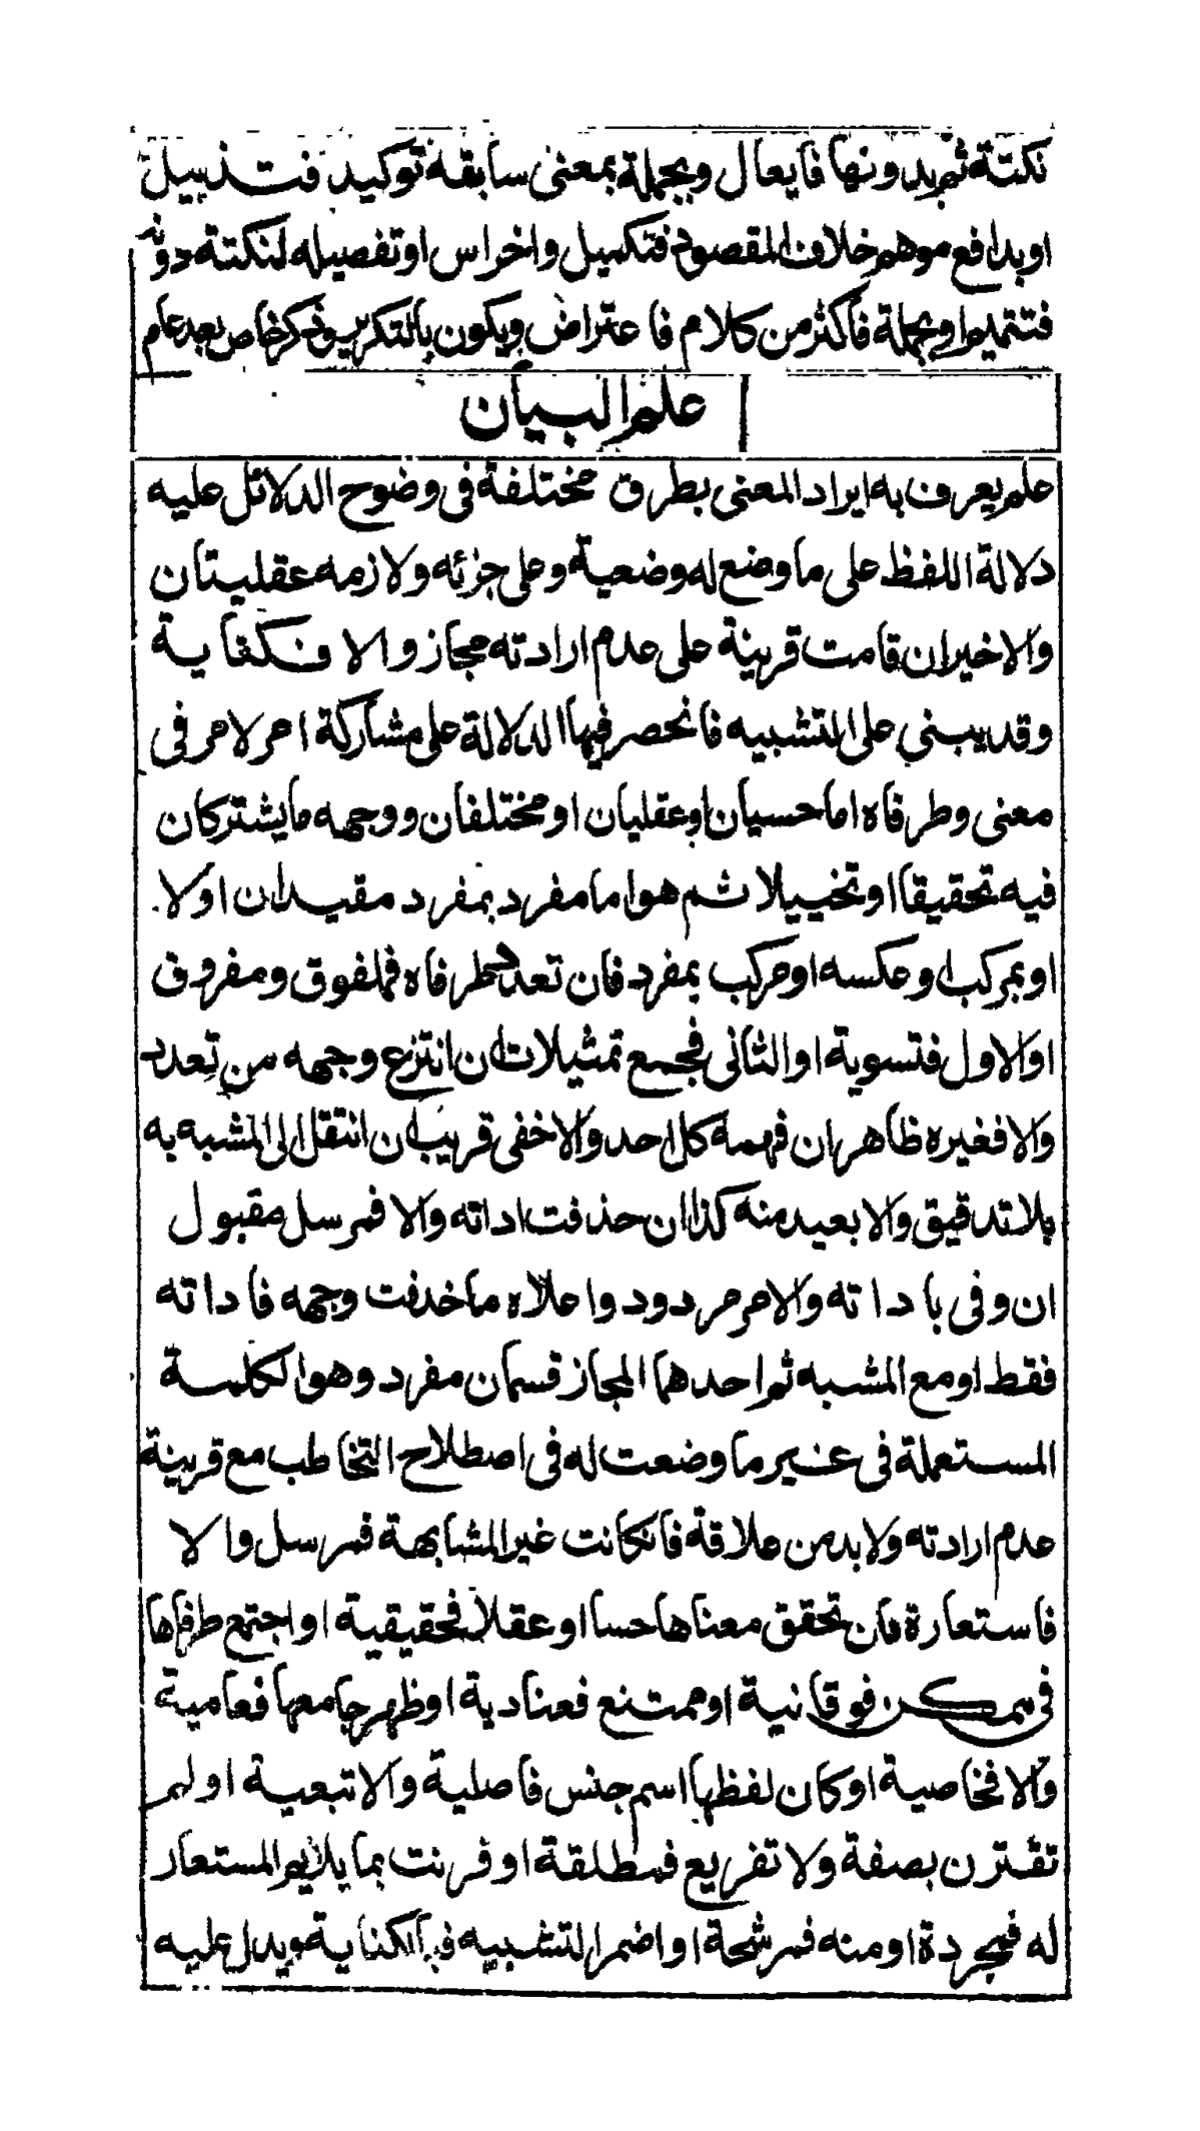 نكتة ثم بدونها فايغال وبجملة بمعنى سابقة توكيد فتذييل
او بدافع موهم خلاف المقصود فتكميل واخراس او تفصيله لنكتة دونه
فتتميم او بجملة فاكثر من كلام فاعتراض ويكون بالتكرير وذكر خاص بعد عام
علم البيان
علم يعرف به ايراد المعنى بطرق مختلفة فى وضوح الدلائل عليه
دلالة اللفظ على ما وضع له وضعية وعلى جزئه ولازمه عقليتان
والاخيران قامت قرينة على عدم ارادته مجاز والا فكناية
وقد يبنى على التشبيه فانحصر فيها الدلالة على مشاركة امر لامر فى
معنى وطرفاه اما حسيان او عقليان او مختلفان ووجهه ما يشتركان
فيه تحقيقا او تخييلا ثم هو اما مفرد بمفرد مقيدان اولا
او بمركب او عكسه او مركب بمفرد فان تعدد طرفاه فملفوق ومفروق
او الاول فتسوية او الثانى فجمع تمثيلات ان انتزع وجهه من تعدد
والا فغيره ظاهر ان فهمه كل احد والا خفى قريب ان انتقل الى المشبه به
بلا تدقيق والا بعيد منه كذا ان حذفت اداته والا فمرسل مقبول
ان وفى باداته والا مرمردود واعلاه ما حذفت وجهه فاداته
فقط او مع المشبه ثم احدهما المجاز قسمان مفرد وهو الكلمة
المستعملة فى غير ما وضعت له فى اصطلاح التخاطب مع قرينة
عدم ارادته ولا بد من علاقة فان كانت غير المشابهة فمرسل والا
فاستعارة فان تحقق معناها حسا او عقلا فحقيقية او اجتمع طرفاها
فى ممكن فوقانية او ممتنع فعنادية او ظهر جامعها فعامية
والا فخاصية او كان لفظها اسم جنس فاصلية والا تبعية اولم
تقترن بصفة ولا تفريع فمطلقة او قرنت بما يلايم المستعار
له فمجردة او منه فمرشحة او اضمر التشبيه فبالكناية ويدل عليه